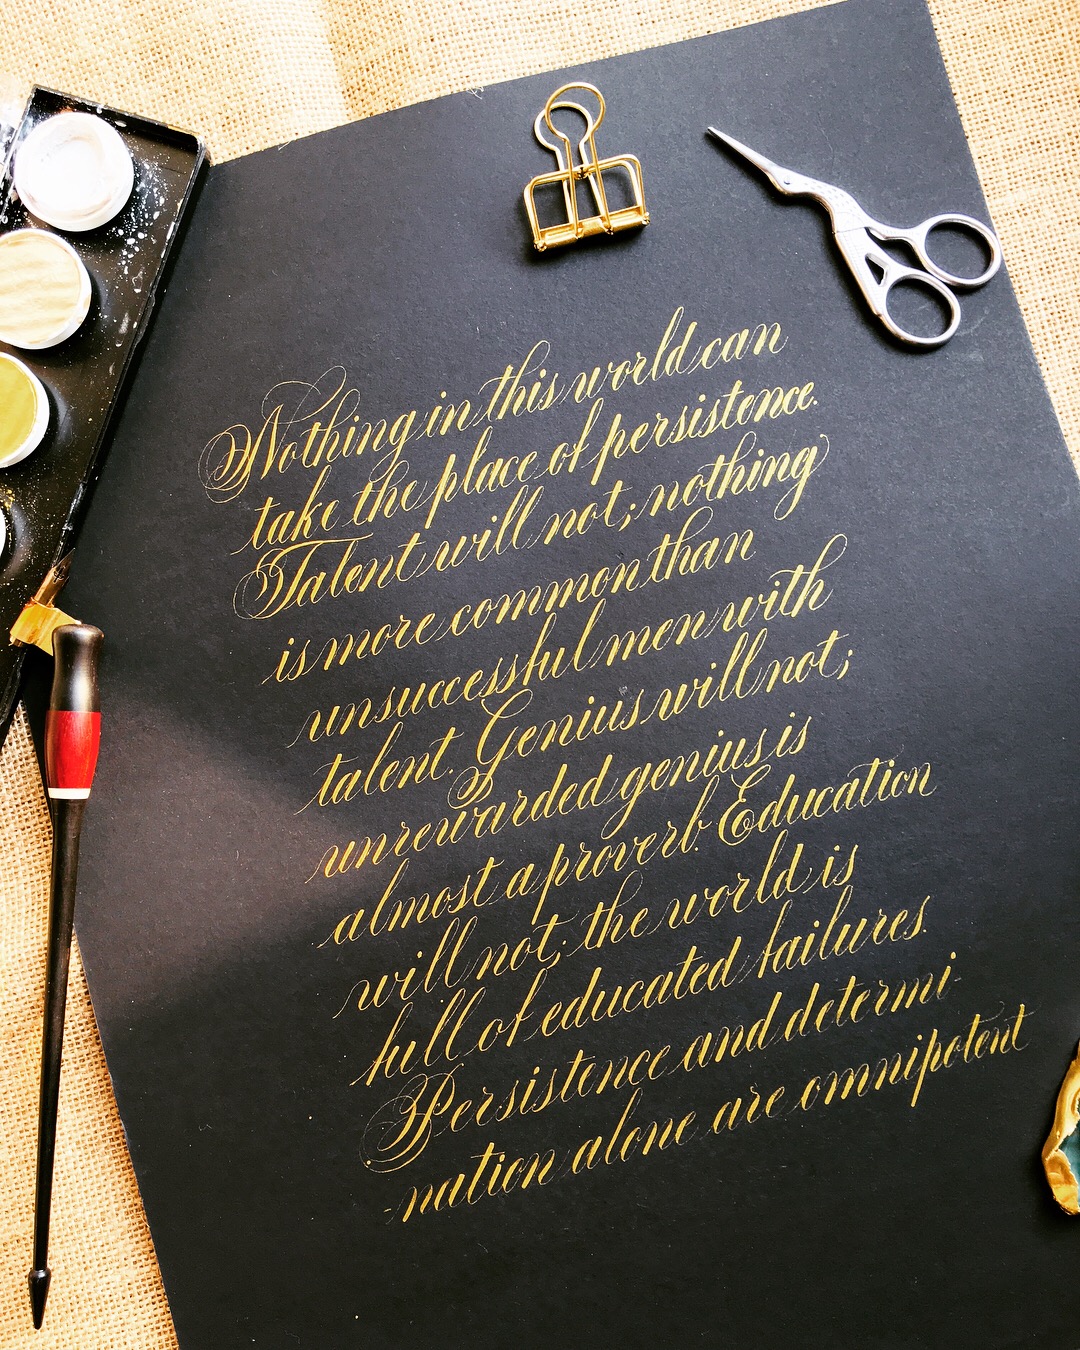 Nothing in this world can
take the place of persistence.
Talent will not; nothing
is more common than
unsuccessful men with
talent. Genius will not;
unrewarded genius is
almost a proverb. Education
will not; the world is
full of educated failures.
Persistence and determi-
-nation alone are omnipotent